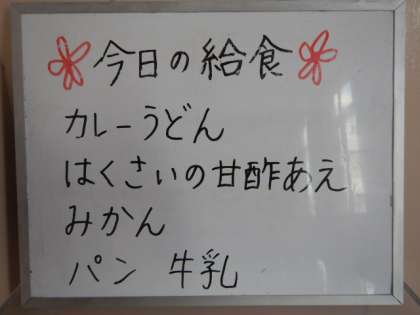 今日の給食
カレーうどん
はくさいの甘酢あえ
みかん
パン 牛乳